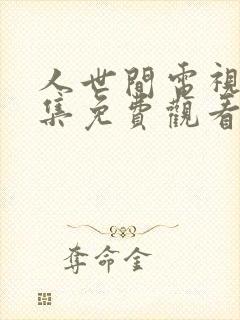 人世間電視
集免費觀看
奪命金